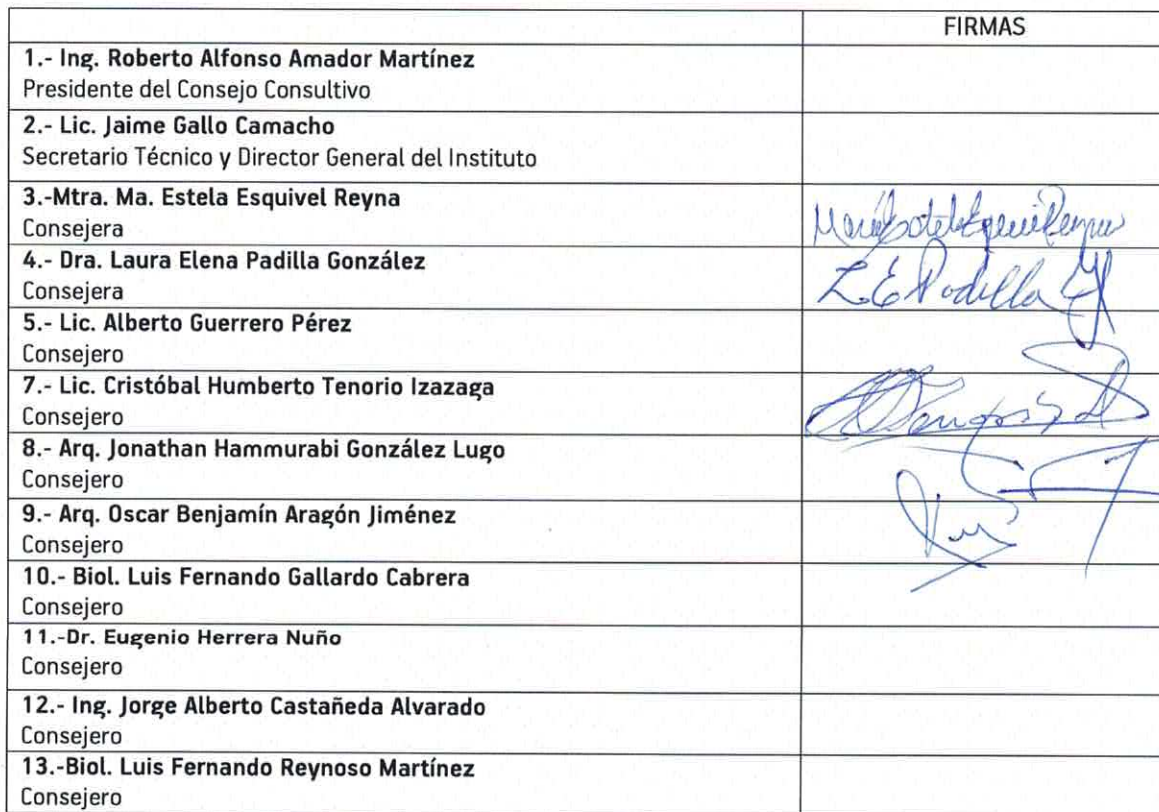 FIRMAS
1.- Ing. Roberto Alfonso Amador Martínez
Presidente del Consejo Consultivo
2.- Lic. Jaime Gallo Camacho
Secretario Técnico y Director General del Instituto
3.-Mtra. Ma. Estela Esquivel Reyna
Consejera
4.- Dra. Laura Elena Padilla González
Consejera
L. E. Padilla G
5.- Lic. Alberto Guerrero Pérez
Consejero
7.- Lic. Cristóbal Humberto Tenorio Izazaga
Consejero
8.- Arq. Jonathan Hammurabi González Lugo
Consejero
9.- Arq. Oscar Benjamín Aragón Jiménez
Consejero
10.- Biol. Luis Fernando Gallardo Cabrera
Consejero
11.-Dr. Eugenio Herrera Nuño
Consejero
12.- Ing. Jorge Alberto Castañeda Alvarado
Consejero
13.-Biol. Luis Fernando Reynoso Martínez
Consejero